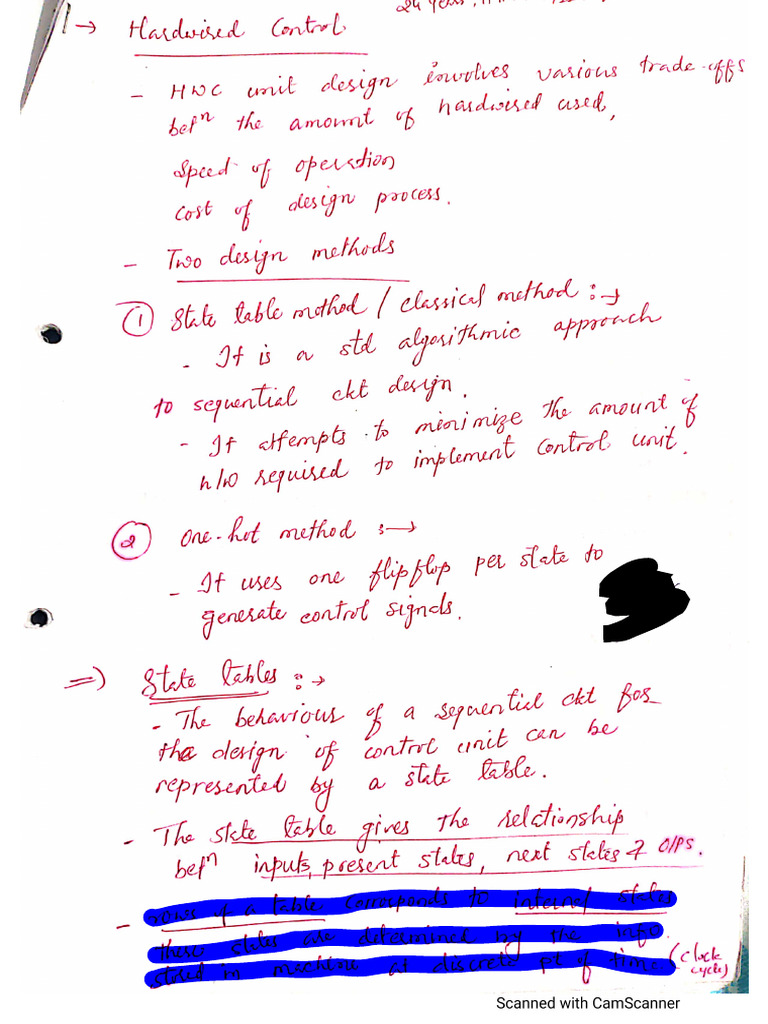 1→ Hardwired Control
- HWC unit design involves various trade-offs
betⁿ the amount of hardwired used,
Speed of operation
cost of design process.
- Two design methods
① State table method / classical method :→
- It is a std algorithmic approach
to sequential ckt design.
- It attempts to minimize the amount of
h/w required to implement control unit.
② One-hot method :→
- It uses one flipflop per state to
generate control signals.
⇒) State tables :→
- The behaviour of a sequential ckt for
the design of control unit can be
represented by a state table.
- The state table gives the relationship
betⁿ inputs, present states, next states & O/PS.
- rows of a table corresponds to internal states
these states are determined by the info
stored in machine at discrete pt of time (clock
cycles)
Scanned with CamScanner